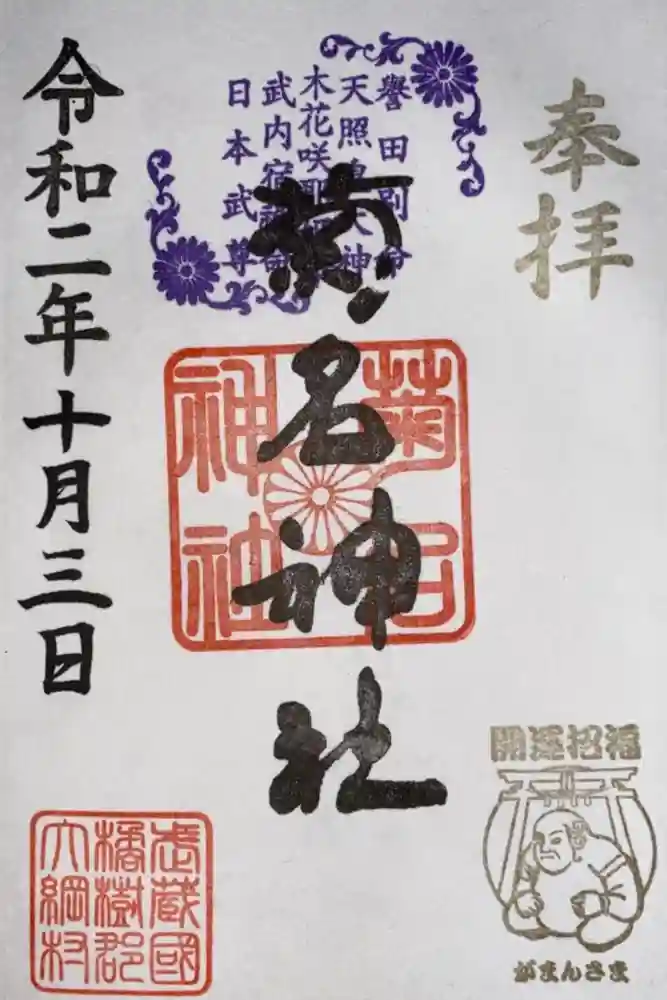 奉拝
譽田別命
天照皇大神
木花咲耶姫命
武内宿禰命
日本武尊
菊名神社
菊名
神社
令和二年十月三日
開運招福
がまんさま
武蔵國
橘樹郡
大綱村